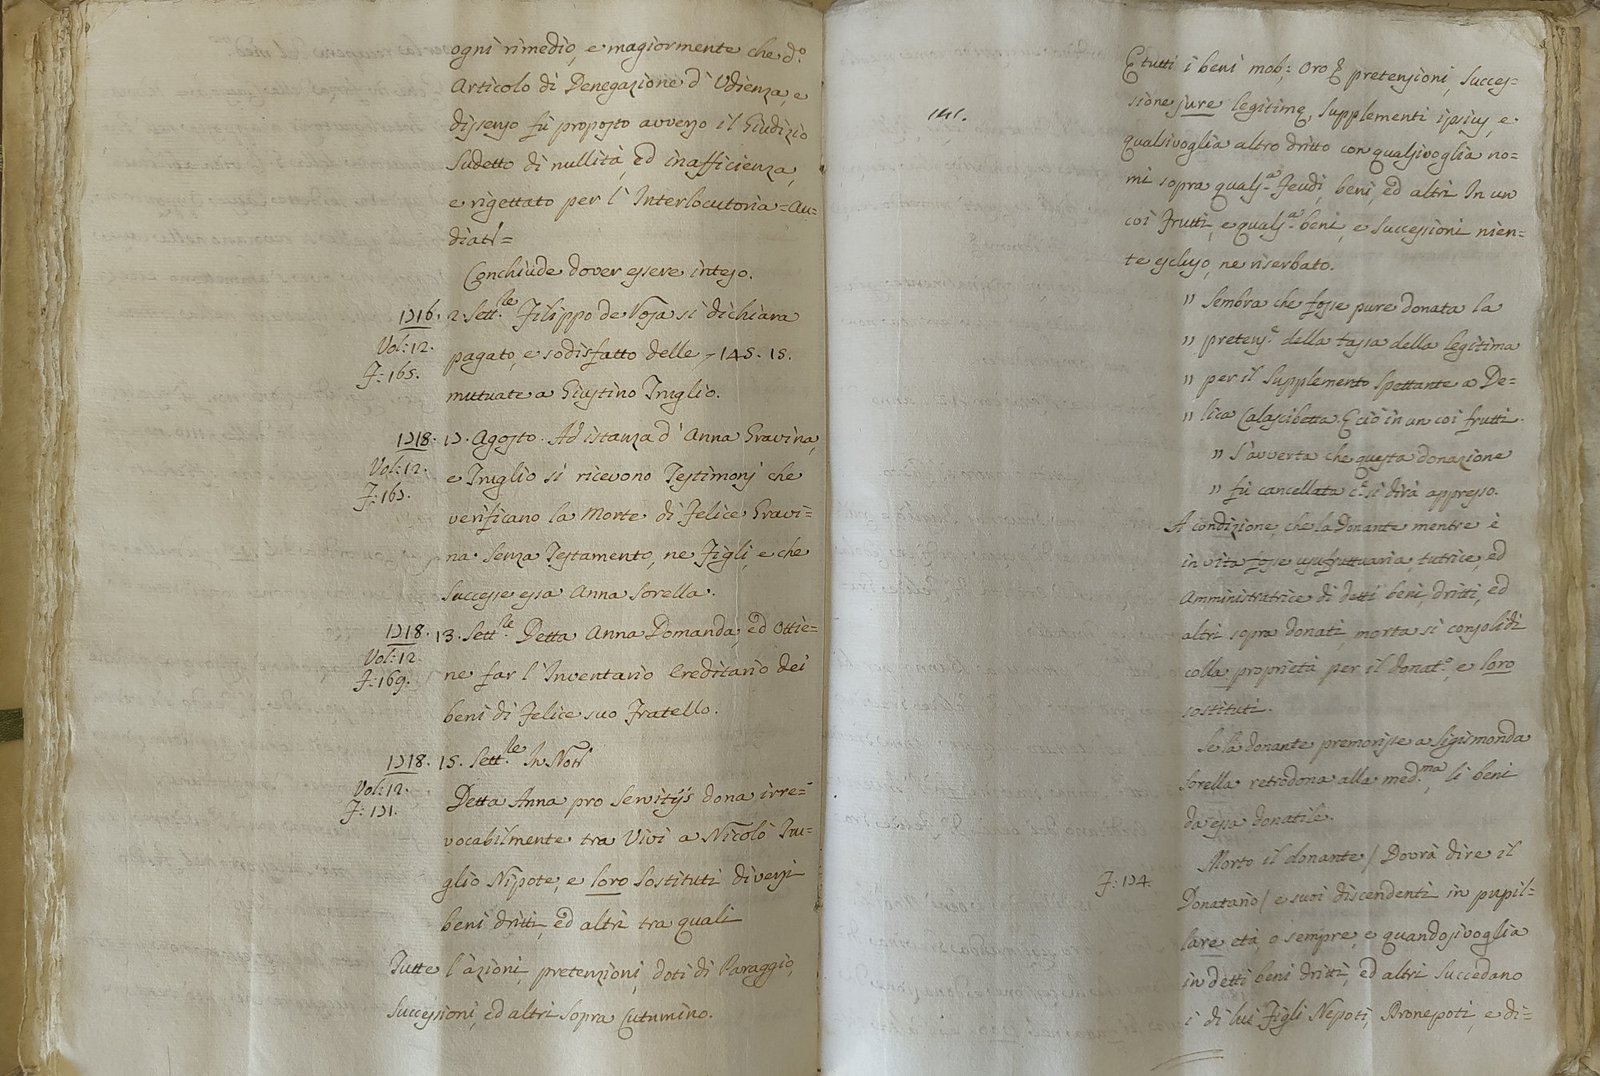 ogni rimedio, e magiormente che d.º
Articolo di Denegazione d'Udienza, e
dissenso fù proposto avverso il Giudizio
sudetto di nullità, ed inafficienza,
e rigettato per l'Interlocutoria = Au=
diati =
Conchiude dover essere inteso.
1716. 2. Sett.le Filippo de Voja si dichiara
Vol: 12.
pagato, e sodisfatto delle 145. 15.
F: 165.
mutuate a Giustino Truglio.
1718. 17. Agosto. Ad istanza d'Anna Gravina,
Vol: 12.
e Truglio si ricevono Testimonj che
F: 167.
verificano la Morte di Felice Gravi=
na senza Testamento, ne Figli, e che
successe essa Anna sorella.
1718. 13. Sett.le Detta Anna Domanda, ed Ottie=
Vol: 12
ne far l'Inventario Ereditario dei
F: 169.
beni di Felice suo Fratello.
1718. 15. Sett.le In Not.
Vol: 12.
Detta Anna pro Servitijs dona irre=
F: 171.
vocabilmente tra Vivi a Nicolò Tru=
glio Nipote, e loro sostituti diversi
beni dritti, ed altri tra quali
Tutte l'azioni, pretenzioni, doti di Paraggio,
successioni, ed altri sopra Cutumino.
141.
E tutti i beni mob: Oro & pretensioni, succes=
sione jure legitimę, supplementi ipsius, e
qualsivoglia altro dritto con qualsivoglia no=
mi sopra quals.a Feudi, beni, ed altri In un
coi Frutti, e quals.a beni, e successioni nien=
te escluso, ne riserbato.
" Sembra che fosse pure donata la
" pretens.e della tassa della legitima
" per il supplemento spettante a De=
" lica Calascibetta. E ciò in un coi frutti.
" S'avverta che questa donazione
" fù cancellata c.e si dirà appresso.
A condizione, che la Donante mentre è
in vita fosse usufruttuaria, tutrice, ed
Amministratrice di detti beni, dritti, ed
altri sopra donati, morta si consolidi
colla proprietà per il donat.º, e loro
sostituti.
Se la donante premorisse a Sigismonda
sorella retrodona alla med.ma li beni
da essa donatile.
Morto il donante / Dovrà dire il
F: 174.
Donatario / e suoi discendenti in pupil=
lare età, o sempre, e quandosivoglia
in detti beni dritti, ed altri succedano
i di lui Figli Nepoti, Pronepoti, e di=